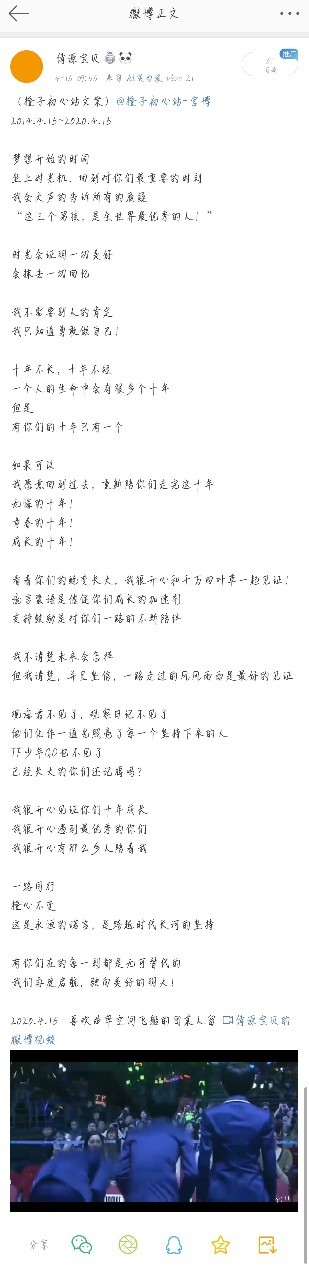 微博正文
倚源宝贝
（橙子初心站文案）@橙子初心站-官博
2014.4.15~2020.4.15
梦想开始的时间
坐上时光机，回到对你们最重要的时刻
我会大声的告诉所有的质疑
“这三个男孩，是全世界最优秀的人！”
时光会证明一切美好
会抹去一切回忆
我不需要别人的肯定
我只知道勇敢做自己！
十年不长，十年不短
一个人的生命中会有很多个十年
但是
有你们的十年只有一个
如果可以
我愿意回到过去，重新陪你们走完这十年
无悔的十年！
青春的十年！
成长的十年！
看着你们的蜕变长大，我很开心和千万四叶草一起见证！
流言蜚语是催促你们成长的加速剂
支持鼓励是对你们一路的不断陪伴
我不清楚未来会怎样
但我清楚，并且坚信，一路走过的风风雨雨是最好的见证
观察君不见了，观察日记不见了
他们化作一道光照亮了每一个坚持下来的人
TF少年GO也不见了
已经长大的你们还记得吗？
我很开心见证你们十年成长
我很开心遇到最优秀的你们
我很开心有那么多人陪着我
一路同行
橙心不变
这是永恒的诺言，是跨越时代长河的坚持
有你们在的每一刻都是无可替代的
我们再度启航，驶向美好的明天！
2020.4.15
分享